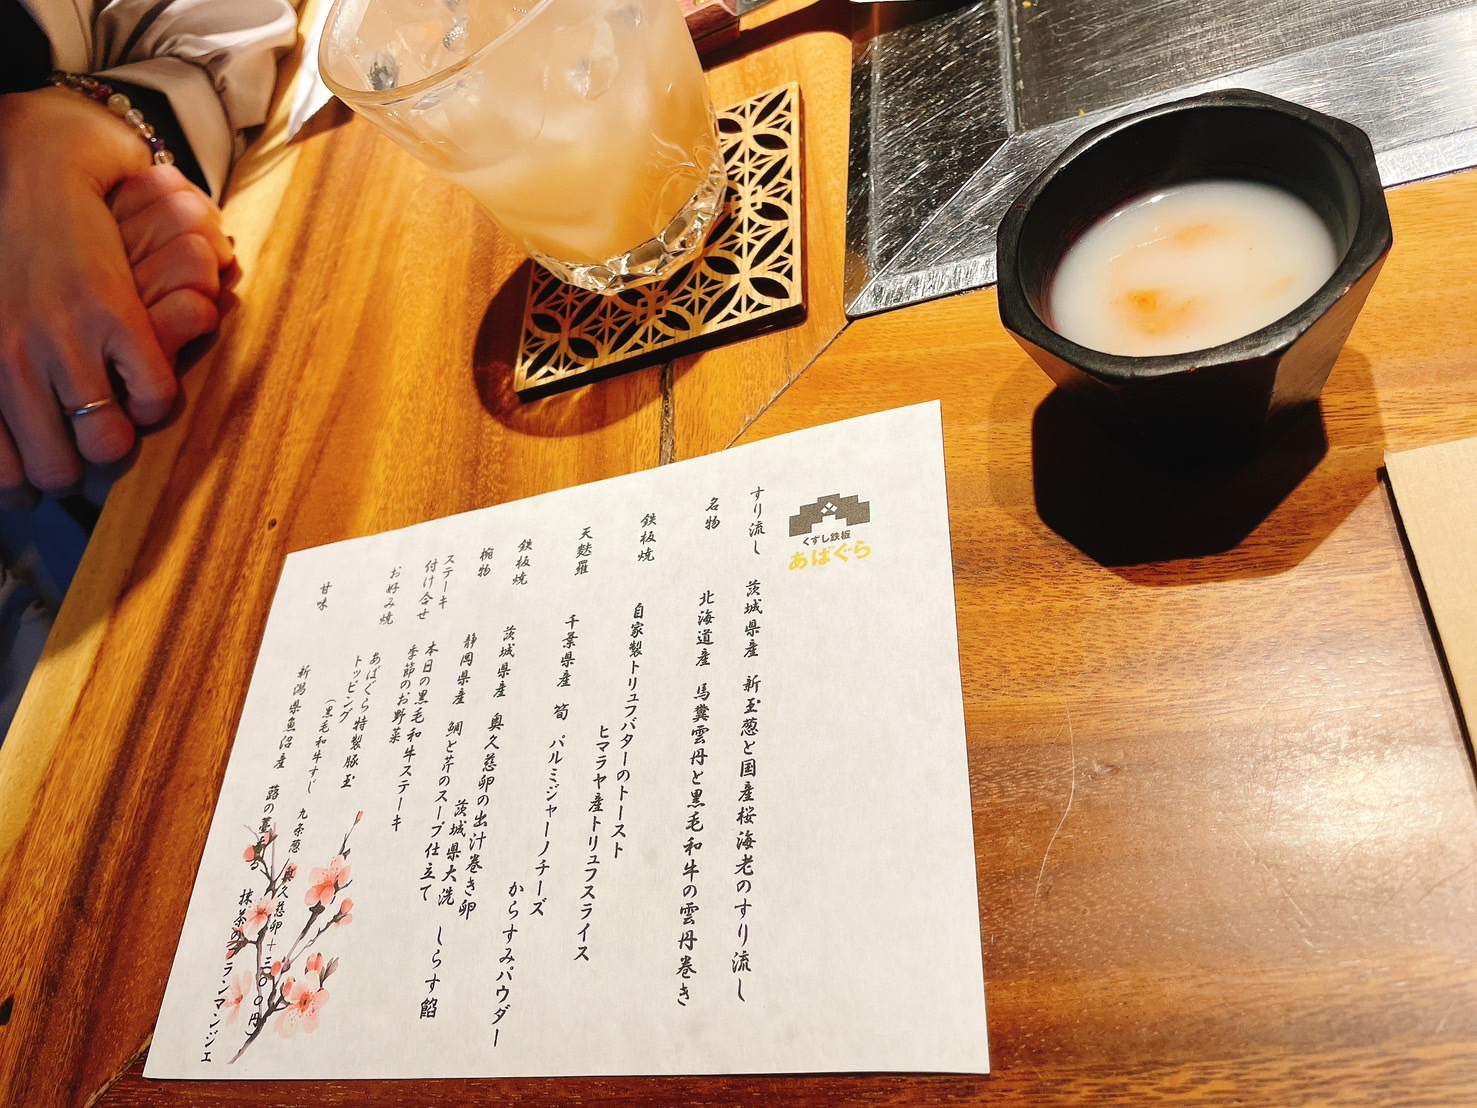 くずし鉄板
あばぐら
すり流し 茨城県産 新玉葱と国産桜海老のすり流し
名物 北海道産 馬糞雲丹と黒毛和牛の雲丹巻き
鉄板焼 自家製トリュフバターのトースト
ヒマラヤ産トリュフスライス
天麩羅 千葉県産 筍 パルミジャーノチーズ
からすみパウダー
鉄板焼 茨城県産 奥久慈卵の出汁巻き卵
茨城県大洗 しらす餡
椀物 静岡県産 鯛と芹のスープ仕立て
ステーキ 本日の黒毛和牛ステーキ
付け合せ 季節のお野菜
お好み焼 あばぐら特製豚玉
トッピング
(黒毛和牛すじ 九条葱 奥久慈卵+三〇〇円)
甘味 新潟県魚沼産 蕗の薹香る 抹茶のブランマンジェ